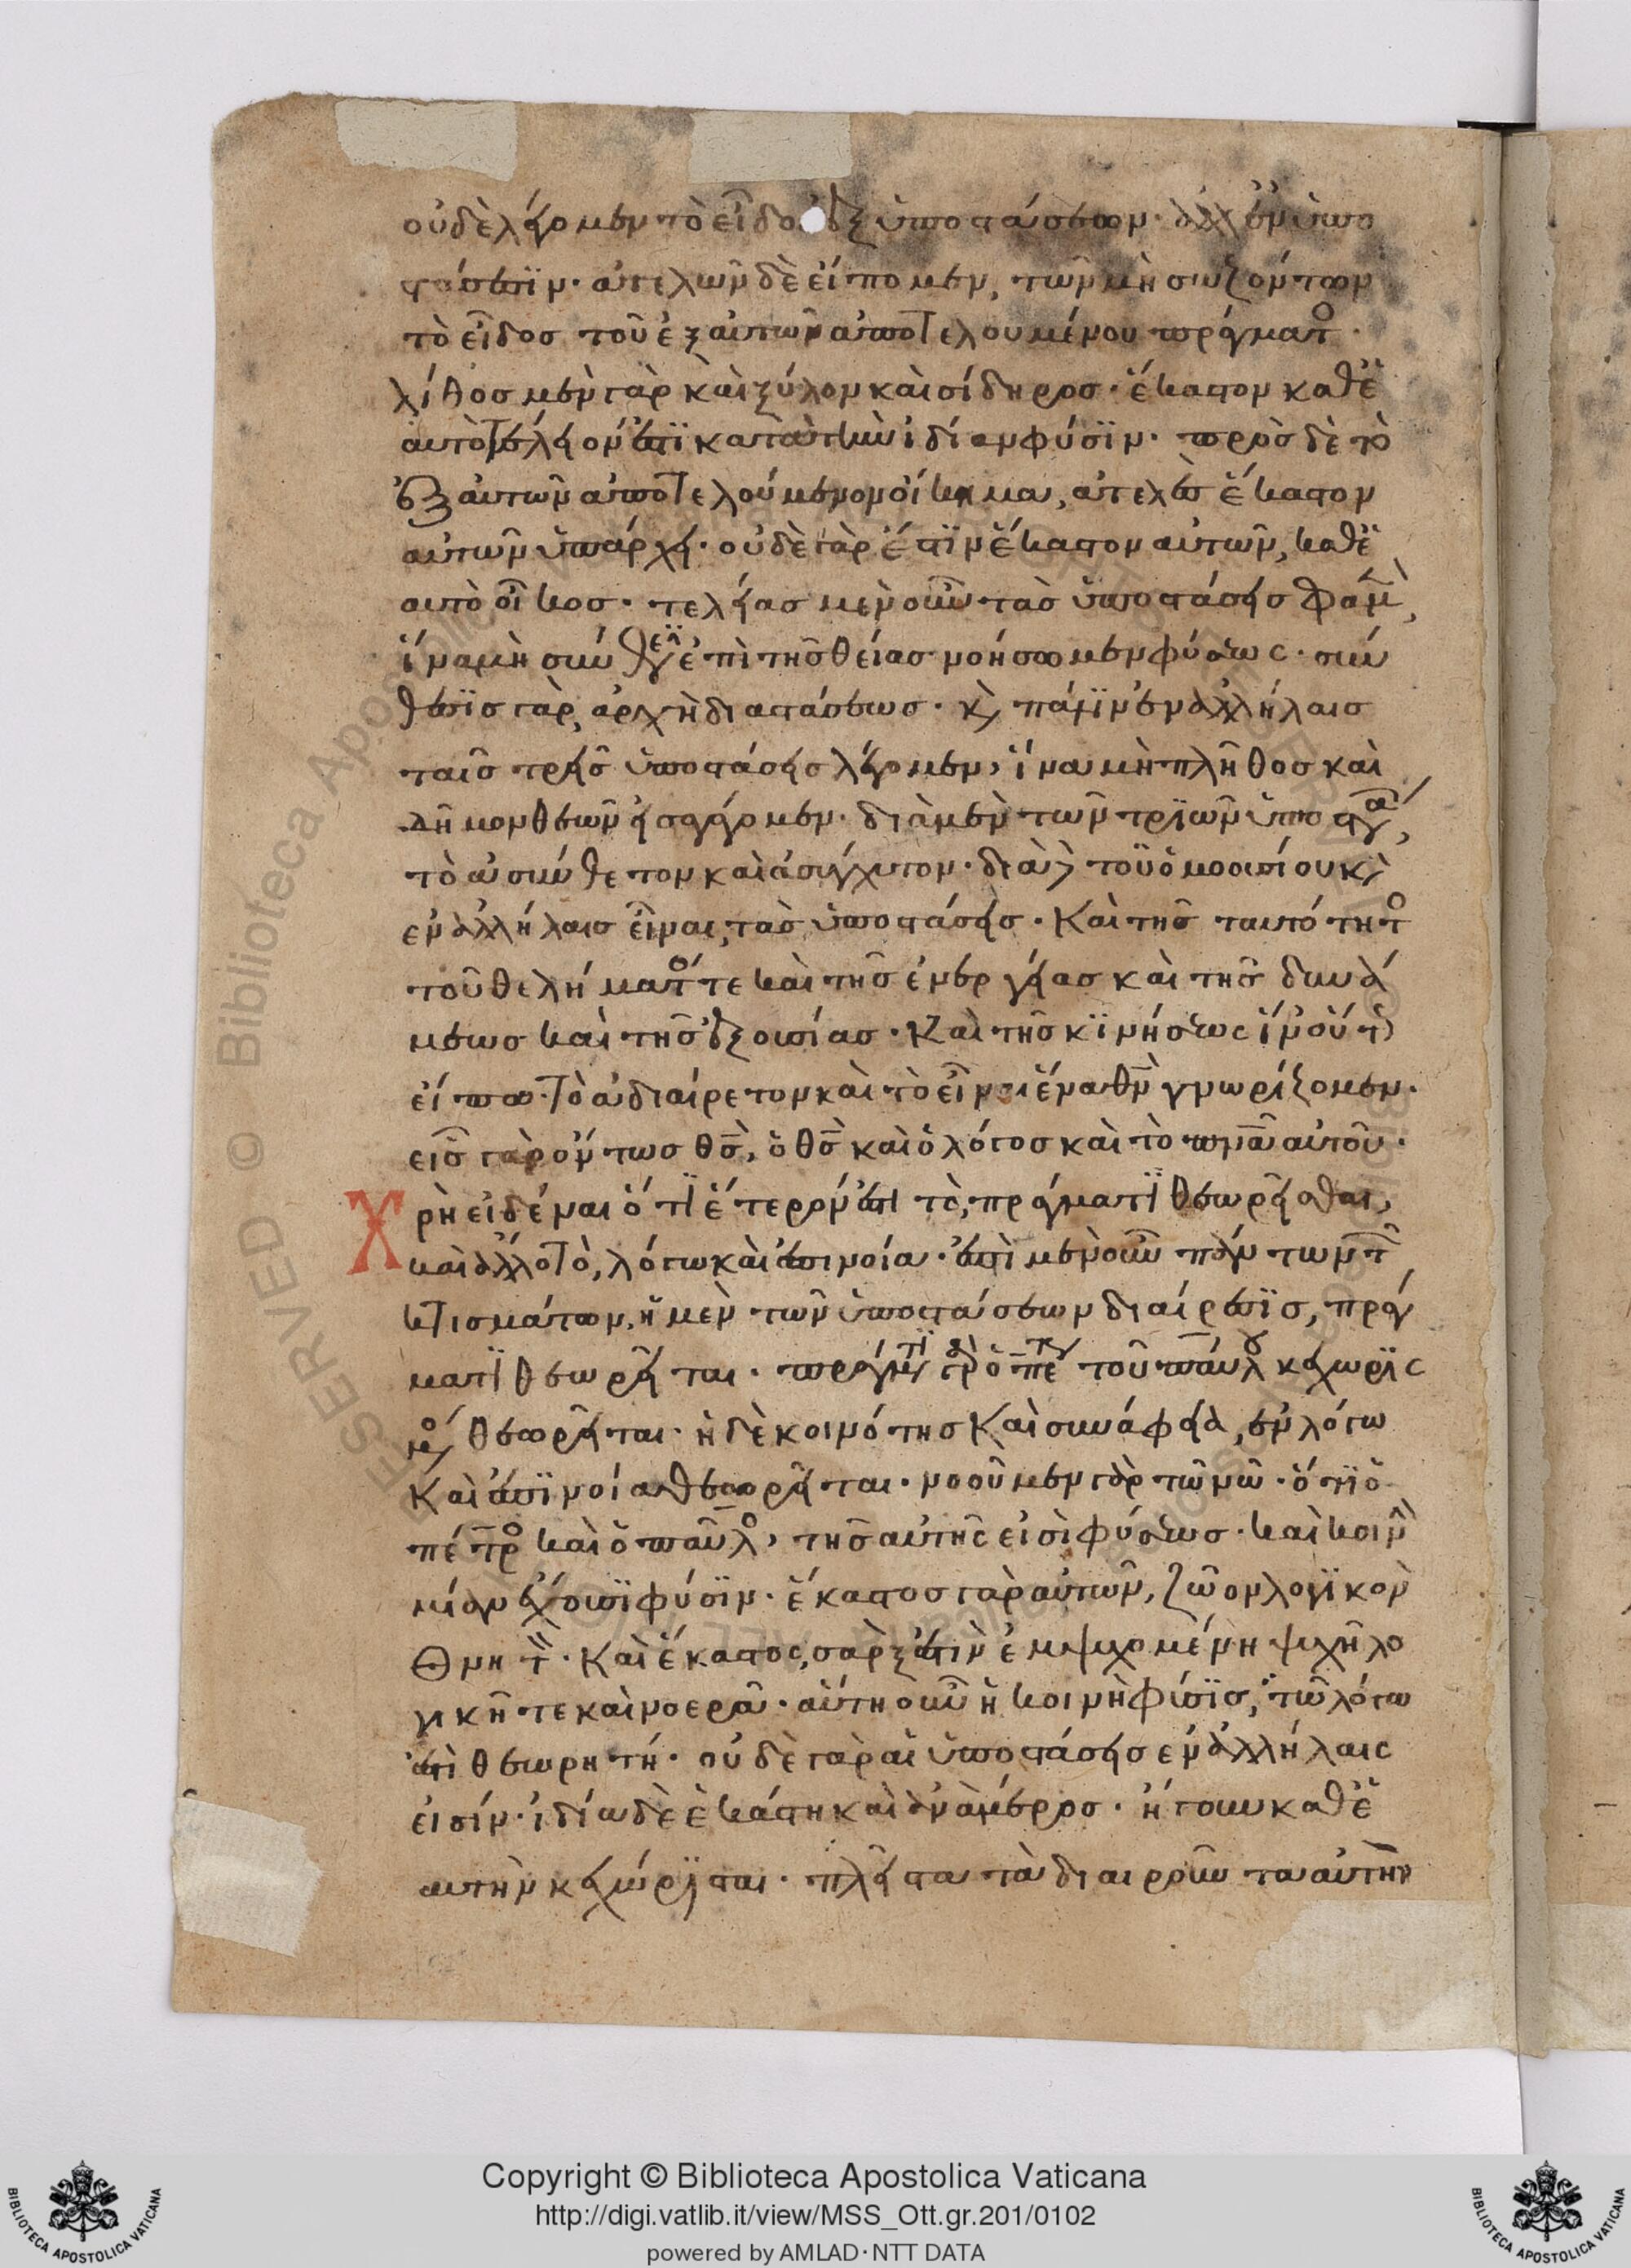 οὐδὲ λέγομεν τὸ εἶδος ἐξ ὑποστάσεων· ἀλλ' ἐν ὑπο
στάσεσιν· ἀτελῶν δὲ εἴπομεν, τῶν μὴ σωζόντων
τὸ εἶδος τοῦ ἐξ αὐτῶν ἀποτελουμένου πράγματο·
λίθος μὲν γὰρ καὶ ξύλον καὶ σίδηρος· ἕκαστον καθ' ἑ
αυτὸ τέλειόν ἐστι κατὰ τὴν ἰδίαν φύσϊν· πρὸς δὲ τὸ
ἐξ αὐτῶν ἀποτελούμενον οἴκημα, ἀτελὲς ἕκαστον
αὐτῶν ὑπάρχει· οὐδὲ γὰρ ἐστϊν ἕκαστον αὐτῶν, καθ' ἑ
αυτὸ οἶκος· τελείας μὲν οὖν τὰς ὑποστάσεις φαμ,
ἵνα μὴ σύνθεσϊν ἐπὶ τῆς θείας νοήσωμεν φύσεως· σύν
θεσϊς γὰρ, ἀρχὴ διαστάσεως· κ πάλϊν ἐν ἀλλήλαις
ταῖς τρεῖς ὑποστάσεις λέγομεν, ἵνα μὴ πλῆθος καὶ
δῆμον θεῶν εἰσάγομεν· διὰ μὲν τῶν τρϊῶν ὑποστά,
τὸ ἀσύνθετον καὶ ἀσύγχυτον· διὰ δ τοῦ ὁμοουσίου κ
ἐν ἀλλήλαις εἶναι, τὰς ὑποστάσεις· Καὶ τῆς ταυτότητο
τοῦ θελήματο τε καὶ τῆς ἐνεργείας καὶ τῆς δυνά
μεως καὶ τῆς ἐξουσίας· Καὶ τῆς κϊνήσεως ἵν' οὕτ
εἴπω· τὸ ἀδιαίρετον καὶ τὸ εἶναι ἕνα θν γνωρίζομεν·
εἷς γὰρ ὄντως θς, ὁ θς καὶ ὁ λόγος καὶ τὸ πνα αὐτοῦ·
Χρὴ εἰδέναι ὅτϊ ἕτερόν ἐστι τὸ, πράγματϊ θεωρεῖσθαι,
καὶ ἄλλο τὸ, λόγω καὶ ἐπινοία· ἐπὶ μὲν οὖν πάντων τ
κτισμάτων, ἡ μὲν τῶν ὑποστάσεων διαίρεσϊς, πρά
γματϊ θεωρεῖται· πράγματϊ γὰρ ὁ πέτ τοῦ παύλου κεχωρϊς
μο θεωρεῖται· ἡ δὲ κοινότης Καὶ συνάφεια, ἐν λόγω
Καὶ ἐπϊνοία θεωρεῖται· νοοῦμεν γὰρ τῶ νῶ· ὅτϊ ὁ
πέτρο καὶ ὁ παῦλο, τῆς αὐτῆς εἰσὶ φύσεως· καὶ κοιν
μίαν ἔχουσϊ φύσϊν· ἕκαστος γὰρ αὐτῶν, ζῶον λογϊκὸν
θνητ· Καὶ ἕκαστος, σὰρξ ἐστὶν ἐμψυχομένη ψυχῆ λο
γικῆ τε καὶ νοερᾶ· αὕτη οὖν ἡ κοινὴ φύσϊς, τῶ λόγω
ἐστὶ θεωρητή· οὐδὲ γὰρ αἱ ὑποστάσεις ἐν ἀλλήλαις
εἰσίν· ἰδίω δὲ ἑκάστη καὶ ἀνὰ μέρος· ἤγουν καθ' ἑ
αυτὴν κεχώρϊσται· πλεῖστα τὰ διαιροῦντα αὐτὴν
Copyright © Biblioteca Apostolica Vaticana
http://digi.vatlib.it/view/MSS_Ott.gr.201/0102
powered by AMLAD·NTT DATA